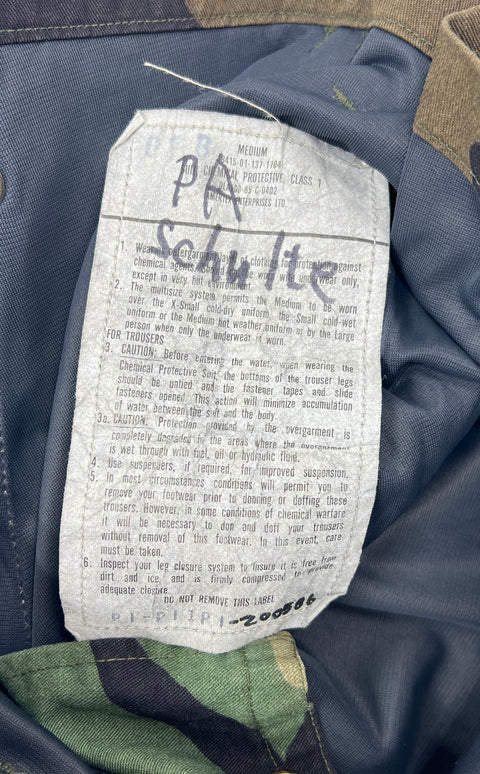 MEDIUM
8415-01-137-1704
SUIT, CHEMICAL PROTECTIVE, CLASS 1
85-C-0402
ENTERPRISES LTD.
PA
Schulte
1. Wear layer of clothing for protection against
chemical agents. be worn with underwear only,
except in very hot environment.
2. The multisize system permits the Medium to be worn
over the X-Small cold-dry uniform, the Small cold-wet
uniform or the Medium hot weather uniform or by the Large
person when only the underwear is worn.
FOR TROUSERS
3. CAUTION: Before entering the water, when wearing the
Chemical Protective Suit, the bottoms of the trouser legs
should be untied and the fastener tapes and slide
fasteners opened. This action will minimize accumulation
of water between the suit and the body.
3a. CAUTION: Protection provided by the overgarment is
completely degraded in the areas where the overgarment
is wet through with fuel, oil or hydraulic fluid.
4. Use suspenders, if required, for improved suspension.
5. In most circumstances conditions will permit you to
remove your footwear prior to donning or doffing these
trousers. However, in some conditions of chemical warfare
it will be necessary to don and doff your trousers
without removal of this footwear. In this event, care
must be taken.
6. Inspect your leg closure system to insure it is free from
dirt and ice, and is firmly compressed to provide
adequate closure.
DO NOT REMOVE THIS LABEL